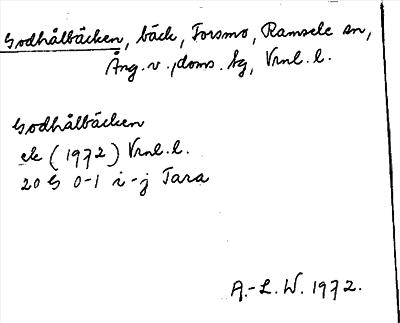 Godhålbäcken, bäck, Forsmo, Ramsele sn,
Ång. v. doms. hg, Vrnl. l.
Godhålbäcken
ek (1972) Vrnl. l.
20 G 0-1 i-j Tara
A.-L. W. 1972.